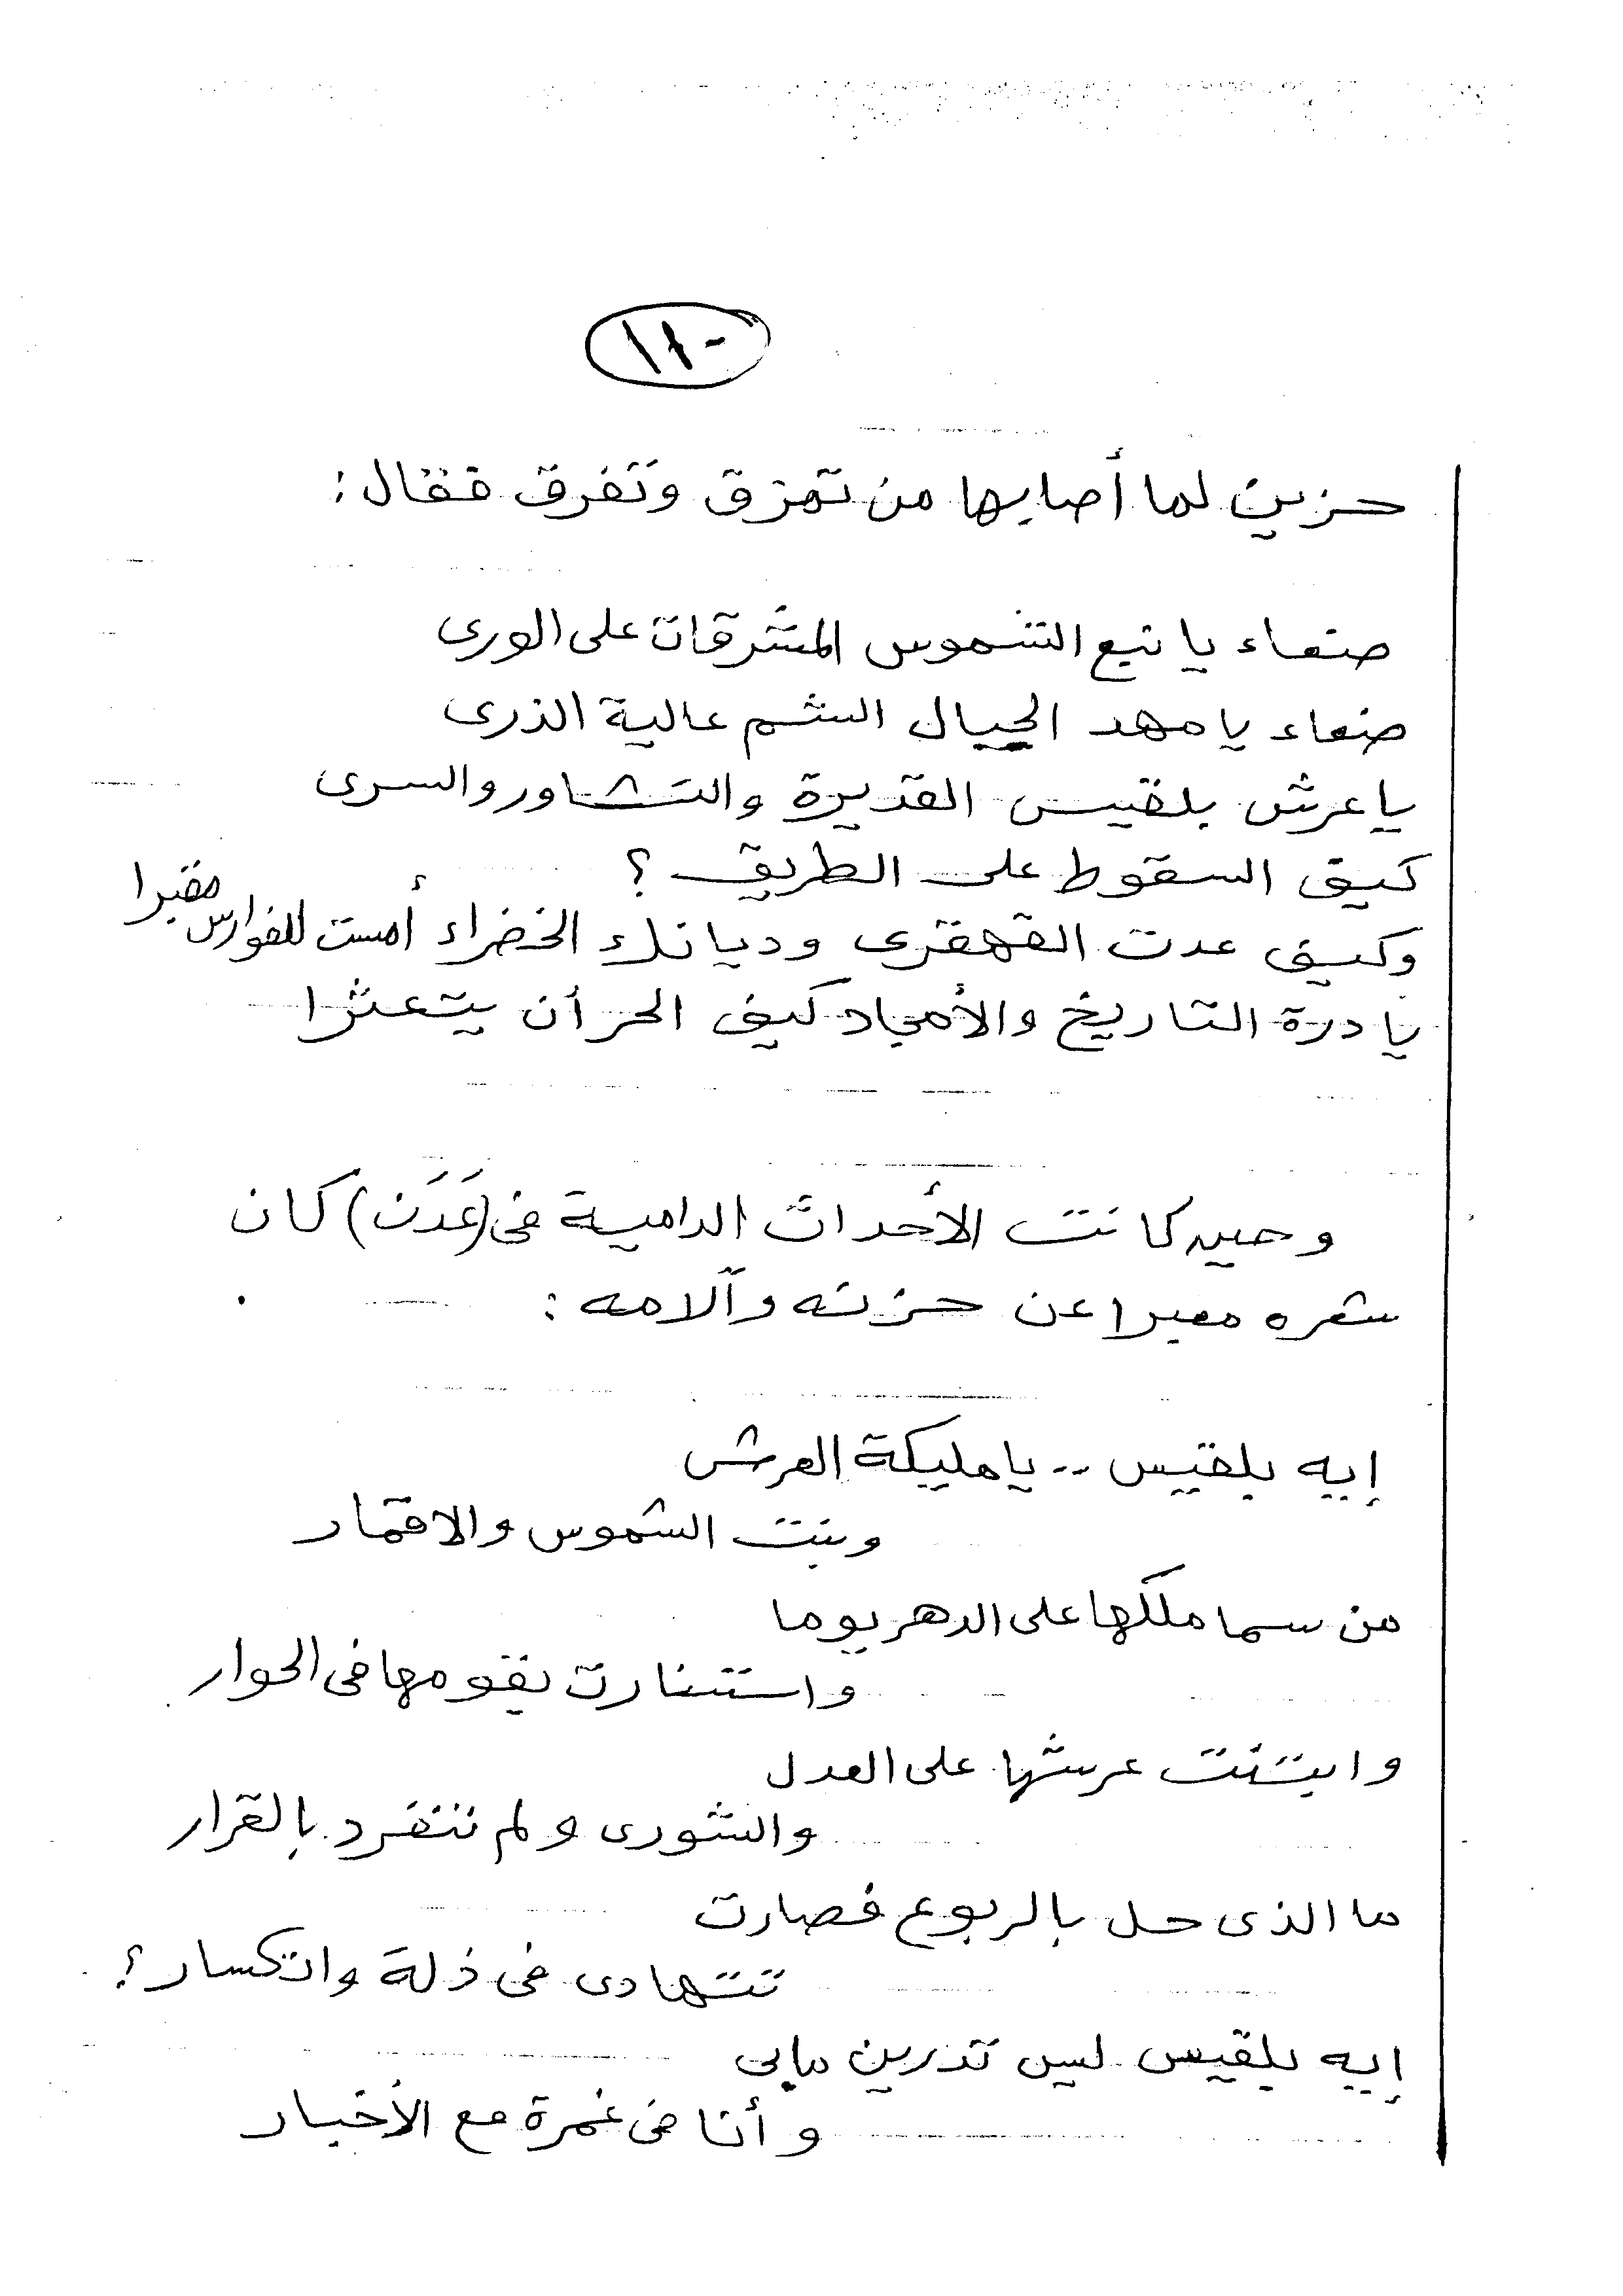 ١١-
حزين لما أصابها من تمزق وتفرق فقال:
صنعاء يا نبع الشموس المشرقات على الورى
صنعاء يا مهد الجبال الشم عالية الذرى
يا عرش بلقيس القديرة والتشاور والسرى
كيف السقوط على الطريق ؟
وكيف عدت القهقرى وديانك الخضراء أمست للفوارس مقبرا
يا درة التاريخ والأمجاد كيف الحر أن يتعثرا
وحين كانت الأحداث الدامية فى (عَدَن) كان
شعره معبرا عن حزنه وآلامه :
إيه بلقيس .. يا مليكة العرش
وبنت الشموس والاقمار
من سما ملكها على الدهر يوما
واستنارت بقومها فى الحوار
وابتنت عرشها على العدل
والشورى ولم تنفرد بالقرار
ما الذى حل بالربوع فصارت
تتهادى فى ذلة وانكسار ؟
إيه بلقيس ليس تدرين مابى
وأنا فى غمرة مع الأخبار